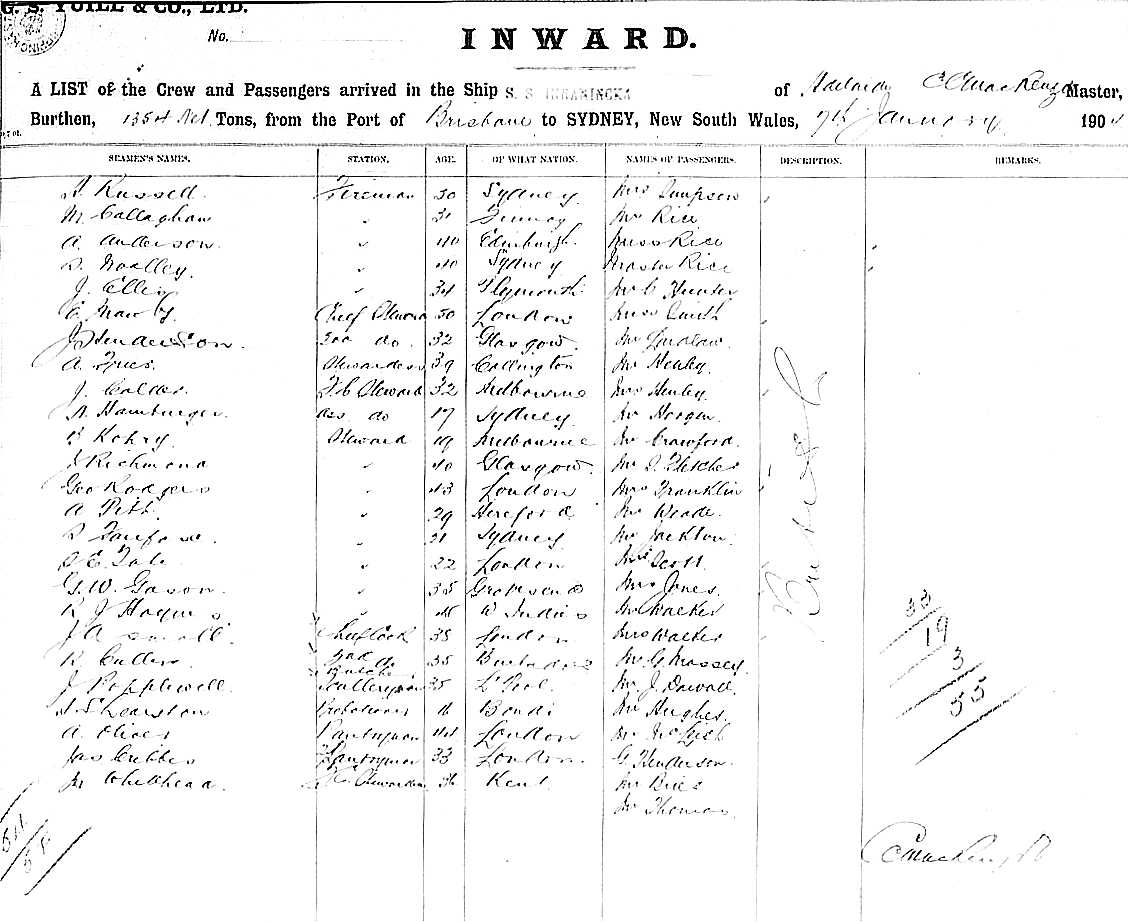 G. S. YUILL & CO., LTD.
No.
INWARD.
A LIST of the Crew and Passengers arrived in the Ship S. S. INNAMINCKA of Adelaide C Mackenzie Master,
Burthen, 1354 Net Tons, from the Port of Brisbane to SYDNEY, New South Wales, 7th January 190
SEAMEN'S NAMES. STATION. AGE. OF WHAT NATION. NAMES OF PASSENGERS. DESCRIPTION. REMARKS.
A. Russell. Fireman 30 Sydney Mrs Simpson
M. Callaghan " 31 Mr Rice
A. Anderson. " 40 Edinburgh. Miss Rice
Woolley. " 40 Sydney Master Rice
J. Ellis " 34 Plymouth Mr C Hunter
Chief Steward 50 London Miss Smith
J Henderson. 2nd do. 32 Glasgow. Mr Ludlow.
A. Stewardess 39 Callington Mr Henley.
J. Calder. F.C Steward 32 Melbourne Mrs Henley
A. Hamburger. do 17 Sydney Mr Horgan
Steward 19 Melbourne Mr Crawford.
J Richmond " 40 Glasgow. Mr Fletcher
Geo Rodgers " 43 London Mrs Franklin
A Pitt " 29 Hereford Mr Weade.
" 21 Sydney Mr Jackson.
E. Tate " 22 London Scott.
G. W. Gason. " 35 Gravesend Mrs Jones.
R J Haynes " 45 W Indies Mr Walker
J A Small Chief Cook 35 London Mrs Walker
R. 2nd do 35 Barbados Mr G. Massey
Butcher
J Popplewell. Sculleryman 35 L'Pool. Mr J. Dowall.
Shearston 16 Bondi Mr Hughes.
A. Oliver Pantryman 44 London
Jas Cribbes Pantryman 33 London. G. Henderson.
Whitehead. Kent Mr
Mr Thomas.
British
33
19
3
55
54
C Mackenzie